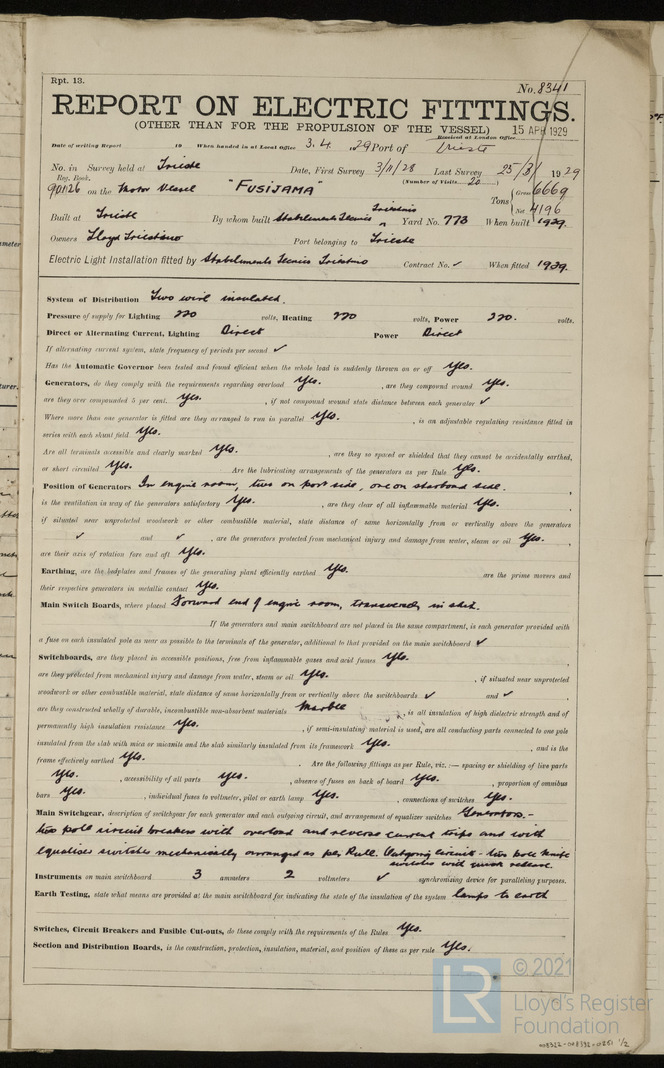 Rpt. 13.
No. 8341
REPORT ON ELECTRIC FITTINGS.
(OTHER THAN FOR THE PROPULSION OF THE VESSEL)
Received at London Office
15 APR 1929
Date of writing Report 19 When handed in at Local Office 3.4. 29 Port of Trieste
No. in Survey held at Trieste Date, First Survey 3/11/28 Last Survey 25/3/ 1929
Reg. Book. (Number of Visits 20)
90126 on the Motor Vessel "FUSIJAMA" Tons { Gross 6669
Net 4196
Built at Trieste By whom built Stabilimento Tecnico Triestino Yard No. 773 When built 1929.
Owners Lloyd Triestino Port belonging to Trieste
Electric Light Installation fitted by Stabilimento Tecnico Triestino Contract No. ✓ When fitted 1929.
System of Distribution Two wire insulated.
Pressure of supply for Lighting 220 volts, Heating 220 volts, Power 220. volts.
Direct or Alternating Current, Lighting Direct Power Direct
If alternating current system, state frequency of periods per second ✓
Has the Automatic Governor been tested and found efficient when the whole load is suddenly thrown on or off Yes.
Generators, do they comply with the requirements regarding overload Yes. , are they compound wound Yes.
are they over compounded 5 per cent. Yes. , if not compound wound state distance between each generator ✓
Where more than one generator is fitted are they arranged to run in parallel Yes. , is an adjustable regulating resistance fitted in
series with each shunt field Yes.
Are all terminals accessible and clearly marked Yes. , are they so spaced or shielded that they cannot be accidentally earthed,
or short circuited Yes. Are the lubricating arrangements of the generators as per Rule Yes.
Position of Generators In engine room, two on port side, one on starboard side.
is the ventilation in way of the generators satisfactory Yes. , are they clear of all inflammable material Yes.
if situated near unprotected woodwork or other combustible material, state distance of same horizontally from or vertically above the generators
✓ and ✓ , are the generators protected from mechanical injury and damage from water, steam or oil Yes.
are their axis of rotation fore and aft Yes.
Earthing, are the bedplates and frames of the generating plant efficiently earthed Yes. are the prime movers and
their respective generators in metallic contact Yes.
Main Switch Boards, where placed Forward end of engine room, transversely in ship.
If the generators and main switchboard are not placed in the same compartment, is each generator provided with
a fuse on each insulated pole as near as possible to the terminals of the generator, additional to that provided on the main switchboard ✓
Switchboards, are they placed in accessible positions, free from inflammable gases and acid fumes Yes.
are they protected from mechanical injury and damage from water, steam or oil Yes. , if situated near unprotected
woodwork or other combustible material, state distance of same horizontally from or vertically above the switchboards ✓ and ✓
are they constructed wholly of durable, incombustible non-absorbent materials Marble , is all insulation of high dielectric strength and of
permanently high insulation resistance Yes. , if semi-insulating material is used, are all conducting parts connected to one pole
insulated from the slab with mica or micanite and the slab similarly insulated from its framework Yes. , and is the
frame effectively earthed Yes. . Are the following fittings as per Rule, viz.:— spacing or shielding of live parts
Yes. , accessibility of all parts Yes. , absence of fuses on back of board Yes. , proportion of omnibus
bars Yes. , individual fuses to voltmeter, pilot or earth lamp Yes. , connections of switches Yes.
Main Switchgear, description of switchgear for each generator and each outgoing circuit, and arrangement of equalizer switches Generators.-
two pole circuit breakers with overload and reverse current trips and with
equaliser switches mechanically arranged as per Rule. Outgoing circuit - two pole knife
switches with quick release.
Instruments on main switchboard 3 ammeters 2 voltmeters ✓ synchronizing device for paralleling purposes.
Earth Testing, state what means are provided at the main switchboard for indicating the state of the insulation of the system lamps to earth
Switches, Circuit Breakers and Fusible Cut-outs, do these comply with the requirements of the Rules Yes.
Section and Distribution Boards, is the construction, protection, insulation, material, and position of these as per rule Yes.
© 2021
LR
Lloyd's Register
Foundation
008322-008332-0251 1/2